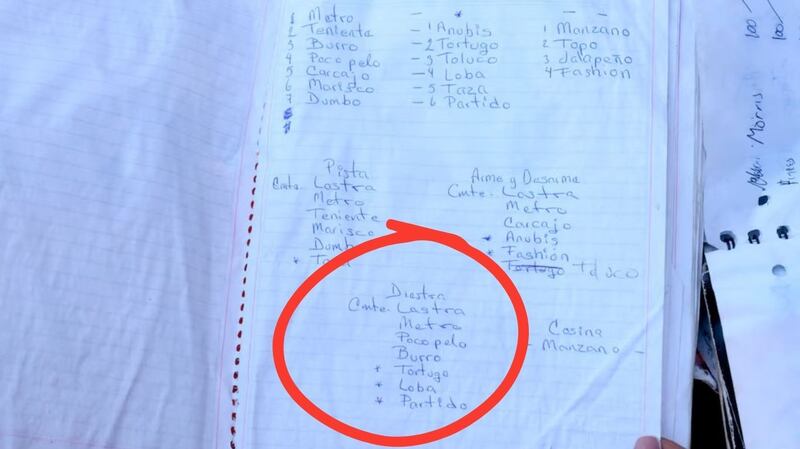 1 Metro - * - -
2 Teniente - 1 Anubis 1 Manzano
3 Burro - 2 Tortugo 2 Topo
4 Poco pelo - 3 Toluco 3 Jalapeño
5 Carcajo - 4 Loba 4 Fashion
6 Marisco - 5 Taza
7 Dumbo - 6 Partido
Pista
Cmte. Lastra
Metro
Teniente
Marisco
Dumbo
Arme y Desarme
Cmte. Lastra
Metro
Carcajo
* Anubis
* Fashion
Tortugo Toluco
Diestra
Cmte. Lastra
Metro
Poco pelo
Burro
* Tortugo
* Loba
* Partido
Cosina
- Manzano -
100
100
Morris